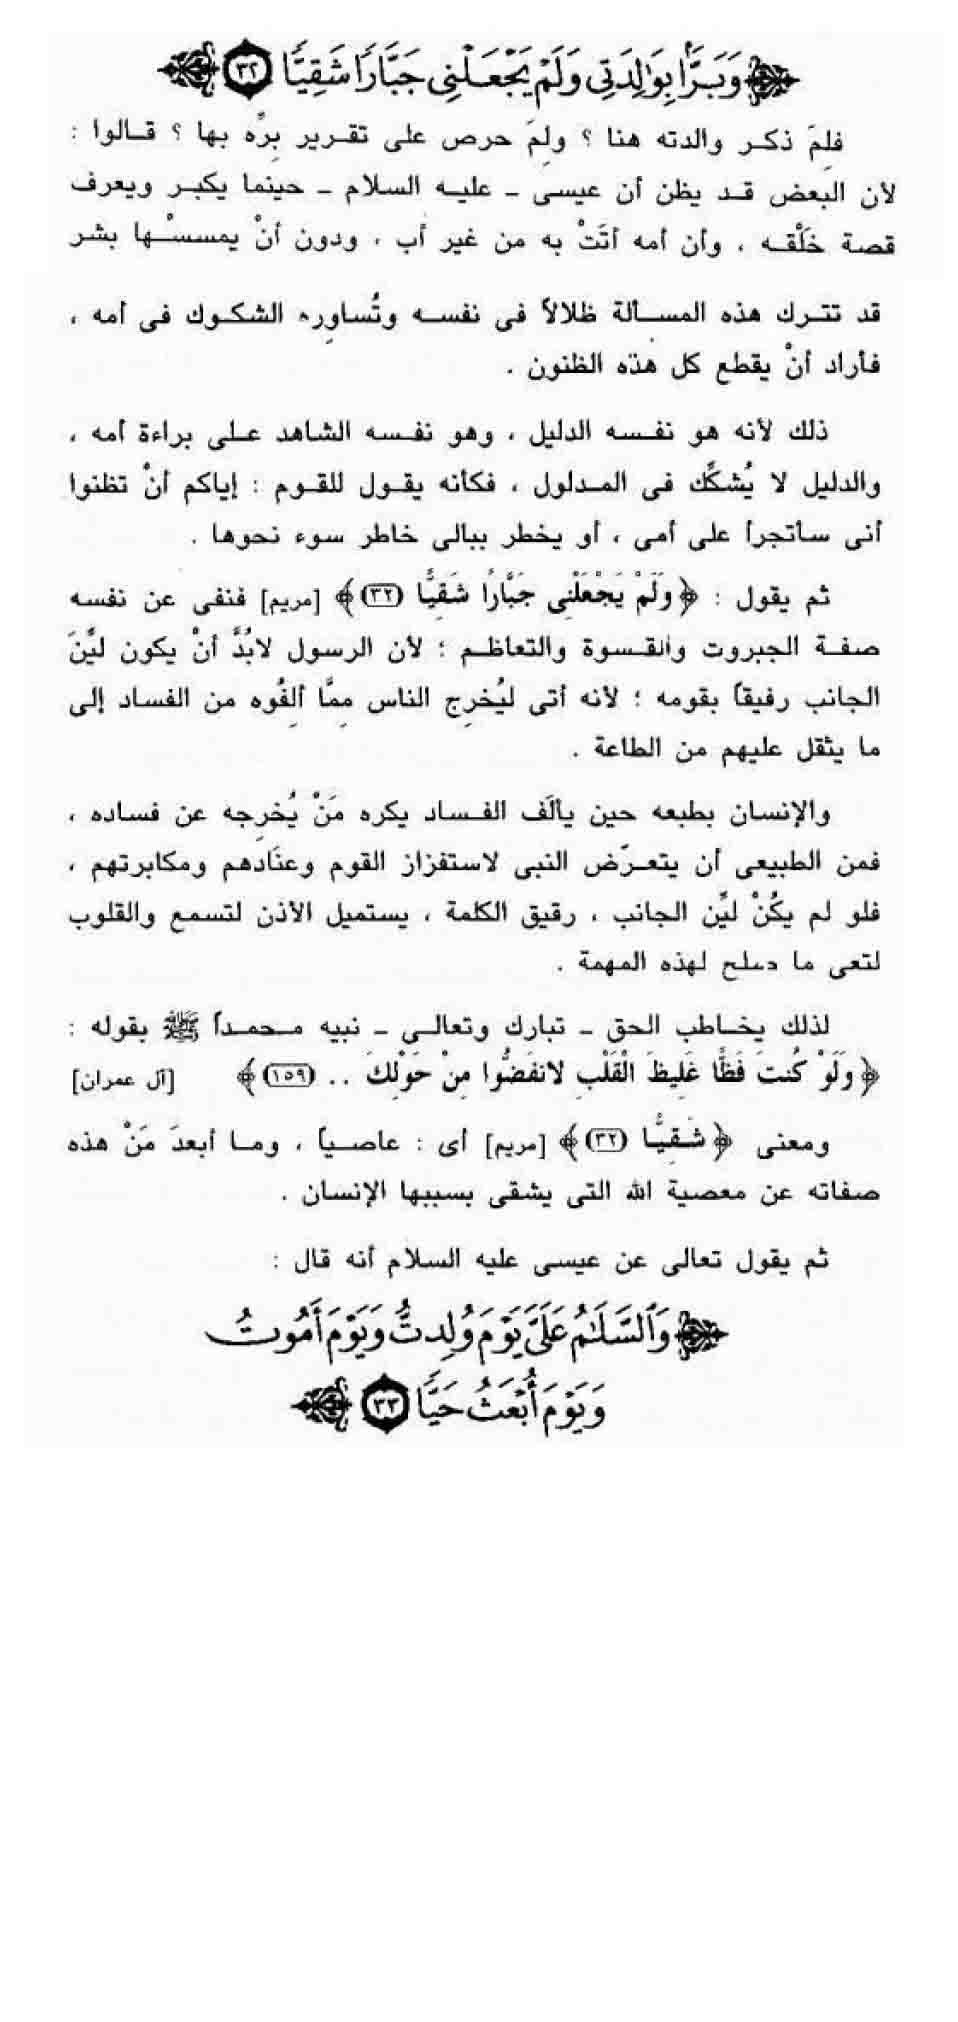 ﴿ وَبَرًّۢا بِوَٰلِدَتِى وَلَمْ يَجْعَلْنِى جَبَّارًا شَقِيًّا ٣٢ ﴾
فلِمَ ذكر والدته هنا ؟ ولِمَ حرص على تقرير برِّه بها ؟ قالوا :
لأن البعض قد يظن أن عيسى ـ عليه السلام ـ حينما يكبر ويعرف
قصة خَلْقه ، وأن أمه أتَتْ به من غير أب ، ودون أنْ يمسسْها بشر
قد تترك هذه المسألة ظلالاً فى نفسه وتُساوِره الشكوك فى أمه ،
فأراد أنْ يقطع كل هذه الظنون .
ذلك لأنه هو نفسه الدليل ، وهو نفسه الشاهد على براءة أمه ،
والدليل لا يُشكِّك فى المدلول ، فكأنه يقول للقوم : إياكم أنْ تظنوا
أنى سأتجرأ على أمى ، أو يخطر ببالى خاطر سوء نحوها .
ثم يقول : ﴿ وَلَمْ يَجْعَلْنِى جَبَّارًا شَقِيًّا (٣٢) ﴾ [مريم] فنفى عن نفسه
صفة الجبروت والقسوة والتعاظم ؛ لأن الرسول لابُدَّ أنْ يكون ليِّنَ
الجانب رفيقاً بقومه ؛ لأنه أتى ليُخرِج الناس مِمَّا ألِفُوه من الفساد إلى
ما يثقل عليهم من الطاعة .
والإنسان بطبعه حين يألَف الفساد يكره مَنْ يُخرِجه عن فساده ،
فمن الطبيعى أن يتعرّض النبى لاستفزاز القوم وعنَادهم ومكابرتهم ،
فلو لم يكُنْ ليِّن الجانب ، رقيق الكلمة ، يستميل الأذن لتسمع والقلوب
لتعى ما صلح لهذه المهمة .
لذلك يخاطب الحق ـ تبارك وتعالى ـ نبيه محمداً ﷺ بقوله :
﴿ وَلَوْ كُنتَ فَظًّا غَلِيظَ الْقَلْبِ لانفَضُّوا مِنْ حَوْلِكَ .. (١٥٩) ﴾ [آل عمران]
ومعنى ﴿ شَقِيًّا (٣٢) ﴾ [مريم] أى : عاصياً ، وما أبعدَ مَنْ هذه
صفاته عن معصية الله التى يشقى بسببها الإنسان .
ثم يقول تعالى عن عيسى عليه السلام أنه قال :
﴿ وَٱلسَّلَـٰمُ عَلَىَّ يَوْمَ وُلِدتُّ وَيَوْمَ أَمُوتُ
وَيَوْمَ أُبْعَثُ حَيًّا ٣٣ ﴾